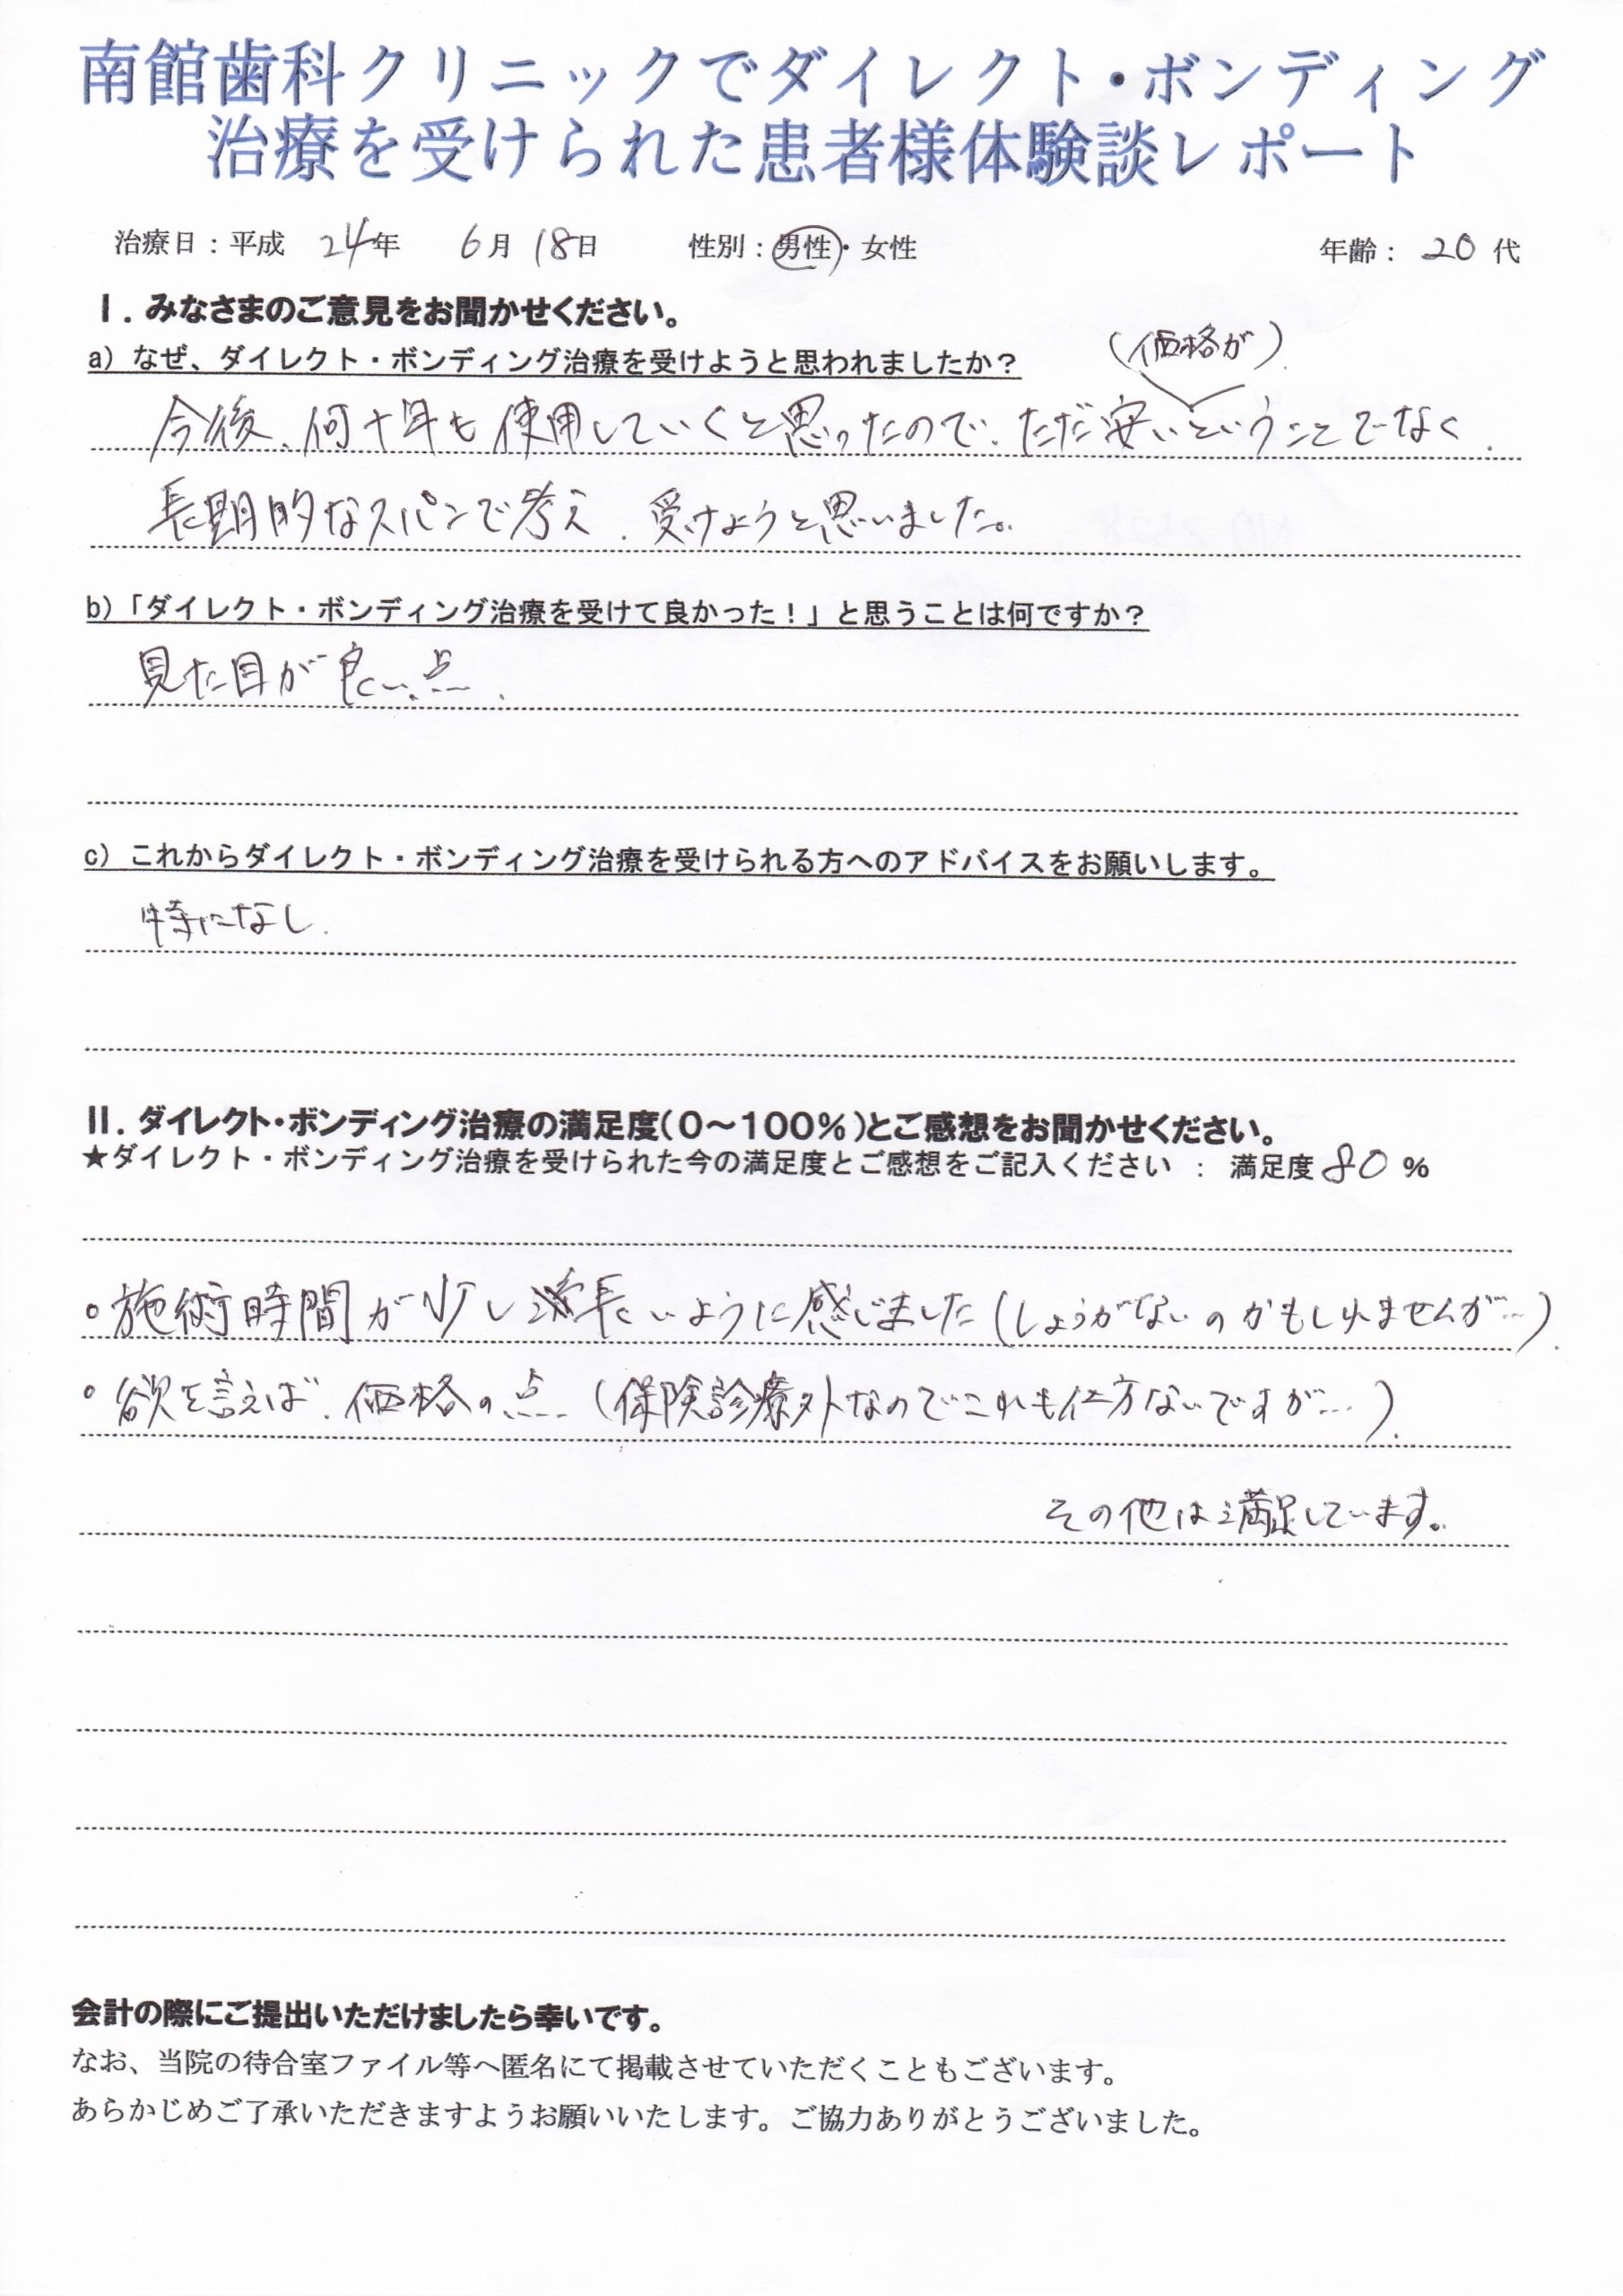 南館歯科クリニックでダイレクト・ボンディング
治療を受けられた患者様体験談レポート
治療日：平成 24年 6月 18日 性別：男性・女性 年齢： 20 代
Ⅰ．みなさまのご意見をお聞かせください。
a）なぜ、ダイレクト・ボンディング治療を受けようと思われましたか？
（価格が）
今後、何十年も使用していくと思ったので、ただ安いということでなく、
長期的なスパンで考え、受けようと思いました。
b）「ダイレクト・ボンディング治療を受けて良かった！」と思うことは何ですか？
見た目が良い点。
c）これからダイレクト・ボンディング治療を受けられる方へのアドバイスをお願いします。
特になし。
Ⅱ．ダイレクト・ボンディング治療の満足度（０～１００％）とご感想をお聞かせください。
★ダイレクト・ボンディング治療を受けられた今の満足度とご感想をご記入ください ： 満足度 80 %
○施術時間が少し長いように感じました（しょうがないのかもしれませんが…）.
○欲を言えば、価格の点…（保険診療外なのでこれも仕方ないですが…）.
その他は満足しています。
会計の際にご提出いただけましたら幸いです。
なお、当院の待合室ファイル等へ匿名にて掲載させていただくこともございます。
あらかじめご了承いただきますようお願いいたします。ご協力ありがとうございました。